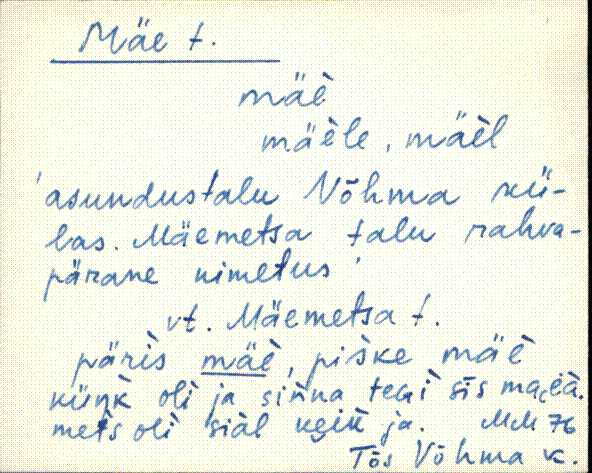 Mäe t.
mäè
mäèle, mäèl
'asundustalu Võhma kü-
las. Mäemetsa talu rahva-
pärane nimetus'
vt. Mäemetsa t.
päris mäè, piske mäè
künk oli ja sinna
mets oli siäl keik ja. MM 76
Tõs Võhma k.